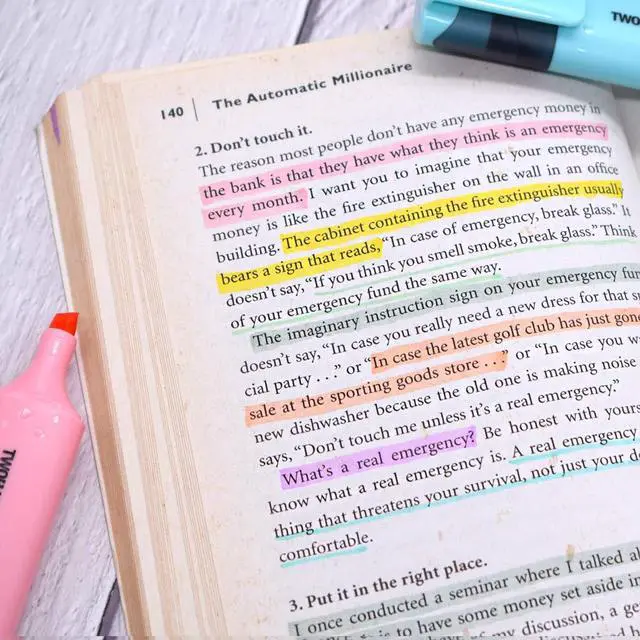 140 | The Automatic Millionaire
2. Don't touch it.
The reason most people don't have any emergency money in
the bank is that they have what they think is an emergency
every month. I want you to imagine that your emergency
money is like the fire extinguisher on the wall in an office
building. The cabinet containing the fire extinguisher usually
bears a sign that reads, "In case of emergency, break glass." It
doesn't say, "If you think you smell smoke, break glass." Think
of your emergency fund the same way.
The imaginary instruction sign on your emergency
doesn't say, "In case you really need a new dress for that
cial party . . ." or "In case the latest golf club has just gone
sale at the sporting goods store . . ." or "In case you
new dishwasher because the old one is making noise
says, "Don't touch me unless it's a real emergency."
What's a real emergency? Be honest with
know what a real emergency is. A real emergency
thing that threatens your survival, not just your
comfortable.
3. Put it in the right place.
I once conducted a seminar where I talked
is to have some money set aside in
my discussion, a
TWO
TWO